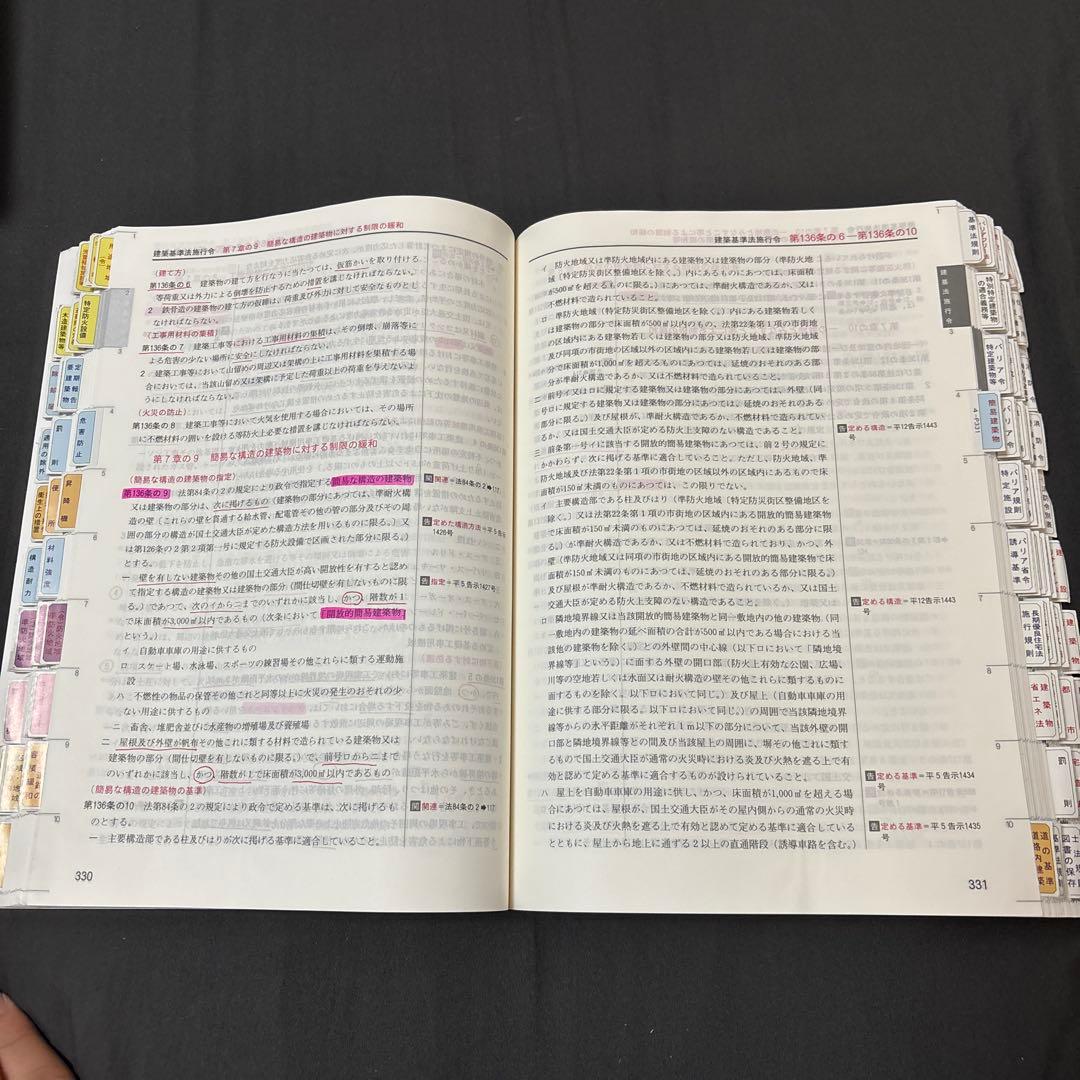 建築基準法施行令 第7章の9 簡易な構造の建築物に対する制限の緩和
(建て方)
第136条の6 建築物の建て方を行なうに当たつては、仮筋かいを取り付ける
等荷重又は外力による倒壊を防止するための措置を講じなければならない。
2 鉄骨造の建築物の建て方の仮締は、荷重及び外力に対して安全なものとし
なければならない。
(工事用材料の集積)
第136条の7 建築工事等における工事用材料の集積は、その倒壊、崩落等に
よる危害の少ない場所に安全にしなければならない。
2 建築工事等において山留めの周辺又は架構の上に工事用材料を集積する場
合においては、当該山留め又は架構に予定した荷重以上の荷重を与えないよ
うにしなければならない。
(火災の防止)
第136条の8 建築工事等において火気を使用する場合においては、その場所
に不燃材料の囲いを設ける等防火上必要な措置を講じなければならない。
第7章の9 簡易な構造の建築物に対する制限の緩和
(簡易な構造の建築物の指定)
第136条の9 法第84条の2の規定により政令で指定する簡易な構造の建築物
又は建築物の部分は、次に掲げるもの(建築物の部分にあつては、準耐火構
造の壁(これらの壁を貫通する給水管、配電管その他の管の部分及びその周
囲の部分の構造が国土交通大臣が定めた構造方法を用いるものに限る。)又
は第126条の2第2項第一号に規定する防火設備で区画された部分に限る。)
とする。
一 壁を有しない建築物その他の国土交通大臣が高い開放性を有すると認め
て指定する構造の建築物又は建築物の部分(間仕切壁を有しないものに限
る。)であつて、次のイからニまでのいずれかに該当し、かつ、階数が1
で床面積が3,000㎡以内であるもの(次条において「開放的簡易建築物」
という。)
イ 自動車車庫の用途に供するもの
ロ スケート場、水泳場、スポーツの練習場その他これらに類する運動施
設
ハ 不燃性の物品の保管その他これと同等以上に火災の発生のおそれの少
ない用途に供するもの
ニ 畜舎、堆肥舎並びに水産物の増殖場及び養殖場
二 屋根及び外壁が帆布その他これに類する材料で造られている建築物又は
建築物の部分(間仕切壁を有しないものに限る。)で、前号ロからニまで
のいずれかに該当し、かつ、階数が1で床面積が3,000㎡以内であるもの
(簡易な構造の建築物の基準)
第136条の10 法第84条の2の規定により政令で定める基準は、次に掲げるも
のとする。
一 主要構造部である柱及びはりが次に掲げる基準に適合していること。
関 関連=法84条の2➡117
告 定めた構造方法=平5告示
1426号
告 指定=平5告示1427号
関 関連=法84条の2➡117
330
建築基準法施行令 第136条の6―第136条の10
イ 防火地域又は準防火地域内にある建築物又は建築物の部分(準防火地域
(特定防災街区整備地区を除く。)内にあるものにあつては、床面積
が500㎡を超えるものに限る。)にあつては、準耐火構造であるか、又は
不燃材料で造られていること。
ロ 準防火地域(特定防災街区整備地区を除く。)内にある建築物若しく
は建築物の部分で床面積が500㎡以内のもの、法第22条第1項の市街地
の区域内にある建築物若しくは建築物の部分又は防火地域、準防火地域
及び同項の市街地の区域以外の区域内にある建築物若しくは建築物の部
分で床面積が1,000㎡を超えるものにあつては、延焼のおそれのある部
分が準耐火構造であるか、又は不燃材料で造られていること。
二 前号イ又はロに規定する建築物又は建築物の部分にあつては、外壁(同
号ロに規定する建築物又は建築物の部分にあつては、延焼のおそれのある
部分に限る。)及び屋根が、準耐火構造であるか、不燃材料で造られてい
るか、又は国土交通大臣が定める防火上支障のない構造であること。
三 前条第一号イに該当する開放的簡易建築物にあつては、前2号の規定に
かかわらず、次に掲げる基準に適合していること。ただし、防火地域、準
防火地域及び法第22条第1項の市街地の区域以外の区域内にあるもので床
面積が150㎡未満のものにあつては、この限りでない。
イ 主要構造部である柱及びはり(準防火地域(特定防災街区整備地区を
除く。)又は法第22条第1項の市街地の区域内にある開放的簡易建築物
で床面積が150㎡未満のものにあつては、延焼のおそれのある部分に限
る。)が準耐火構造であるか、又は不燃材料で造られており、かつ、外
壁(準防火地域又は同項の市街地の区域内にある開放的簡易建築物で床
面積が150㎡未満のものにあつては、延焼のおそれのある部分に限る。)
及び屋根が準耐火構造であるか、不燃材料で造られているか、又は国土
交通大臣が定める防火上支障のない構造であること。
ロ 隣地境界線又は当該開放的簡易建築物と同一敷地内の他の建築物(同
一敷地内の建築物の延べ面積の合計が500㎡以内である場合における当
該他の建築物を除く。)との外壁間の中心線(以下ロにおいて「隣地境
界線等」という。)に面する外壁の開口部(防火上有効な公園、広場、
川等の空地若しくは水面又は耐火構造の壁その他これらに類するものに
面するものを除く。以下ロにおいて同じ。)及び屋上(自動車車庫の用
途に供する部分に限る。以下ロにおいて同じ。)の周囲で当該隣地境界
線等からの水平距離がそれぞれ1m以下の部分について、当該外壁の開
口部と隣地境界線等との間及び当該屋上の周囲に、塀その他これに類す
るもので国土交通大臣が通常の火災時における炎及び火熱を遮る上で有
効と認めて定める基準に適合するものが設けられていること。
ハ 屋上を自動車車庫の用途に供し、かつ、床面積が1,000㎡を超える場
合にあつては、屋根が、国土交通大臣がその屋内側からの通常の火災時
における炎及び火熱を遮る上で有効と認めて定める基準に適合している
とともに、屋上から地上に通ずる2以上の直通階段(誘導車路を含む。)
告 定める構造=平12告示1443
号
告 定める構造=平12告示1443
号
告 定める基準=平5告示1434
号
告 定める基準=平5告示1435
号
331
特定防火設備
木造建築物等
定期報告
要建築物
危害防止
罰則
適用の除外
昇降機
便所
衛生上の措置
材料強度
構造耐力
基準法規則
建築基準法施行令
特別特定建築物の適合義務等
バリア令
特定建築物等
簡易建築物
バリア令
バリア規則
特定施設
バリア省令
誘導基準
長期優良住宅法
施行規則
建築物
省エネ法
都市
罰則
道の基準
道路内建築
図書の保存